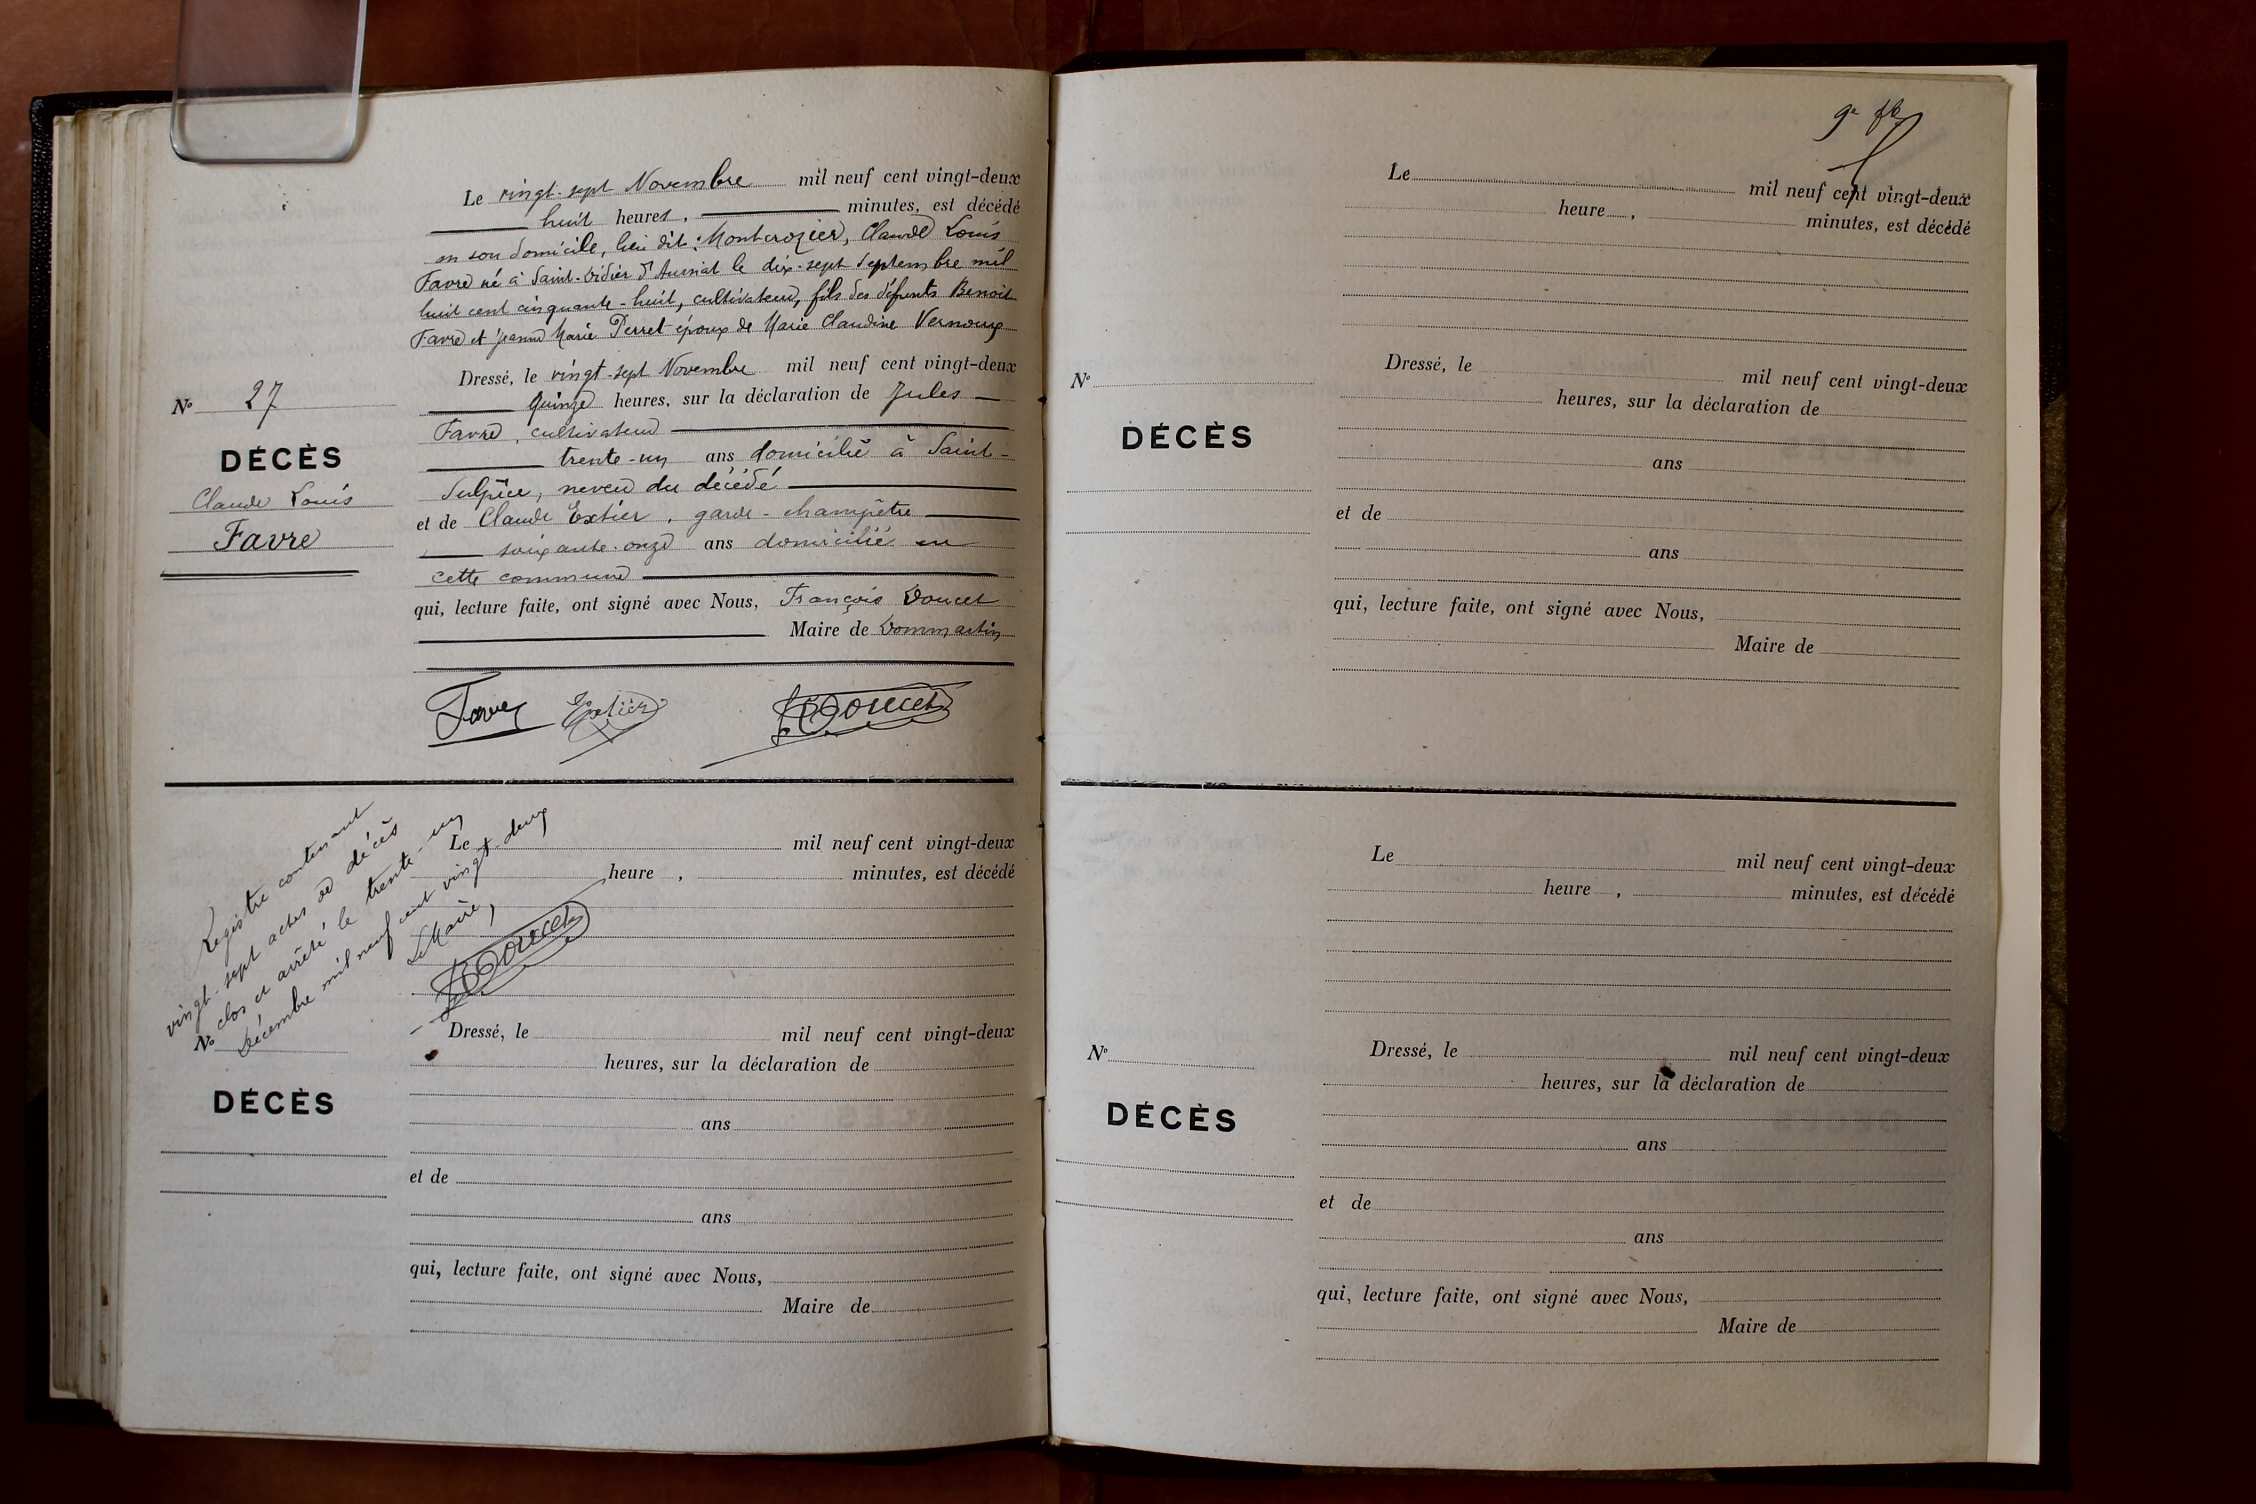 Le vingt-sept Novembre mil neuf cent vingt-deux
huit heures, minutes, est décédé
en son domicile, lieu dit : Montcrozier, Claude Louis
Favre né à Saint-Didier d'Aussiat le dix-sept Septembre mil
huit cent cinquante-huit, cultivateur, fils des défunts Benoit
Favre et Jeanne Marie Perret époux de Marie Claudine Vernoux
Dressé, le vingt-sept Novembre mil neuf cent vingt-deux
quinze heures, sur la déclaration de Jules
Favre, cultivateur
trente-un ans domicilié à Saint-
Sulpice, neveu du décédé
et de Claude Extier, garde-champêtre
soixante-onze ans domicilié en
cette commune
qui, lecture faite, ont signé avec Nous, François Doucet
Maire de Dommartin
Favre Extier Doucet
No 27
DÉCÈS
Claude Louis
Favre
Registre contenant
vingt-sept actes de décès
clos et arrêté le trente-un
Décembre mil neuf cent vingt-deux
Le Maire,
Doucet
Le mil neuf cent vingt-deux
heure , minutes, est décédé
Dressé, le mil neuf cent vingt-deux
heures, sur la déclaration de
ans
et de
ans
qui, lecture faite, ont signé avec Nous,
Maire de
No
DÉCÈS
9e
Le mil neuf cent vingt-deux
heure , minutes, est décédé
Dressé, le mil neuf cent vingt-deux
heures, sur la déclaration de
ans
et de
ans
qui, lecture faite, ont signé avec Nous,
Maire de
No
DÉCÈS
Le mil neuf cent vingt-deux
heure , minutes, est décédé
Dressé, le mil neuf cent vingt-deux
heures, sur la déclaration de
ans
et de
ans
qui, lecture faite, ont signé avec Nous,
Maire de
No
DÉCÈS